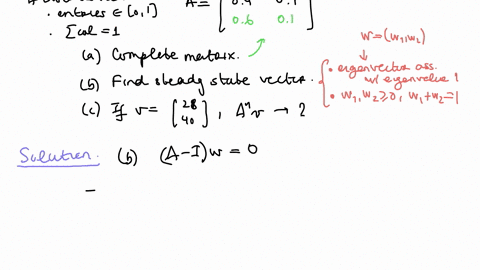 · entries ∈ [0,1]
· Σcol = 1
0.6 0.1
(a) Complete matrix.
(b) Find steady state vector.
(c) If v = [28 40], Aⁿv → ?
w = (w₁,w₂)
• eigenvector ass. w/ eigenvalue 1
• w₁,w₂ ≥ 0, w₁+w₂ = 1
Solution. (b) (A-I)w = 0